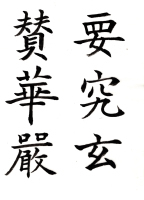 要究玄
賛華嚴